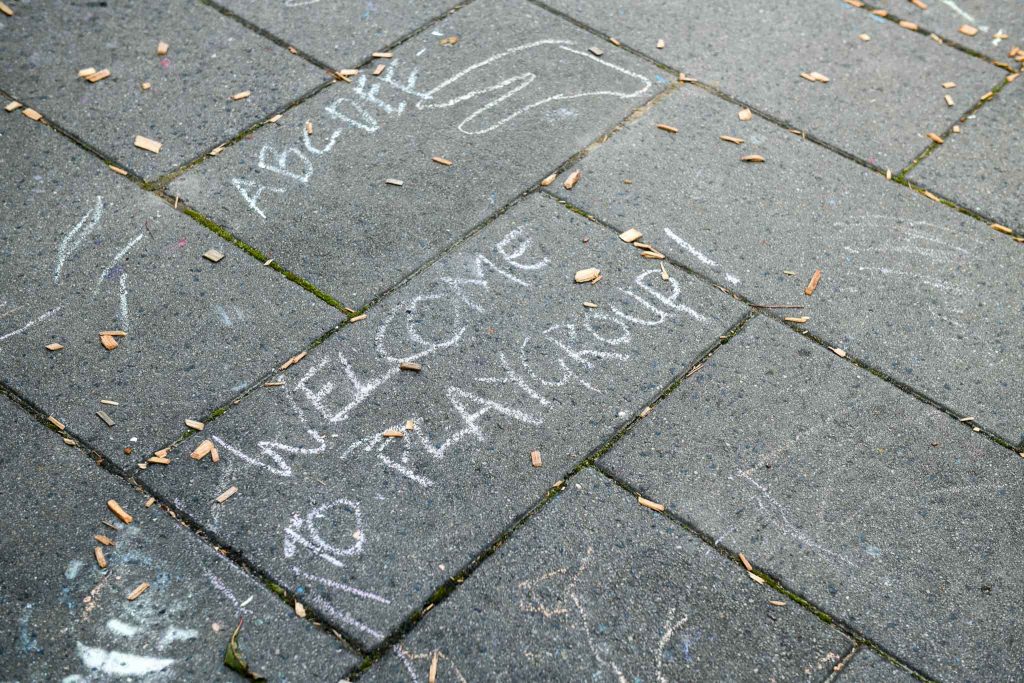 ABCDEF
WELCOME
TO PLAYGROUP!